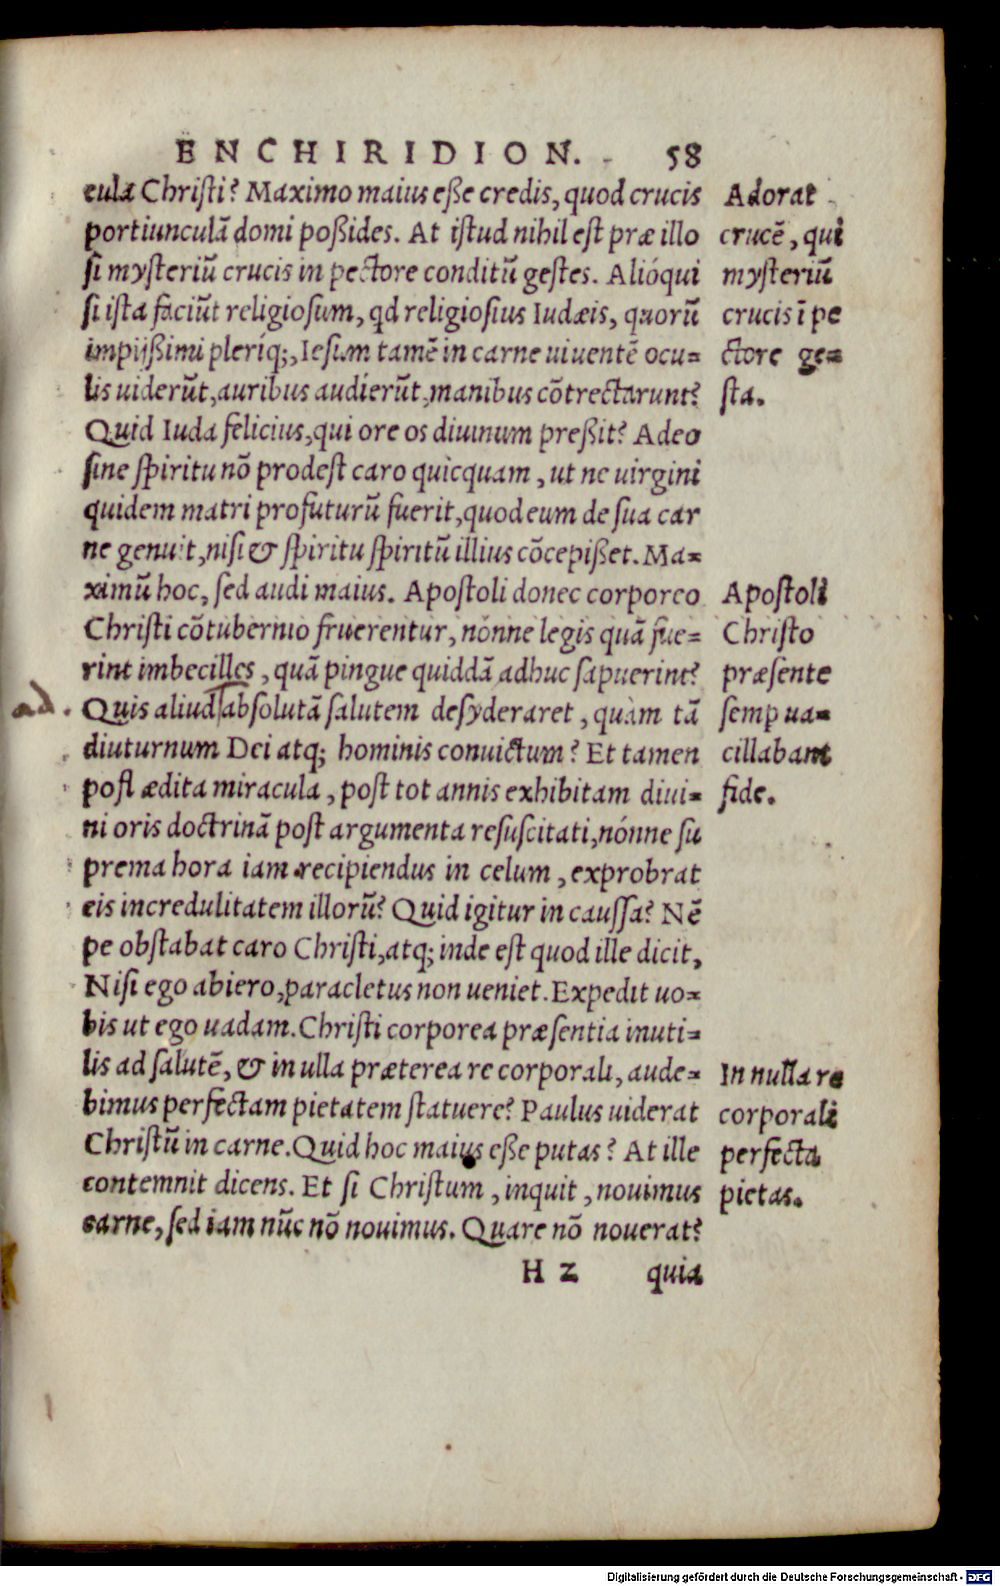 ENCHIRIDION. 58
cula Christi? Maximo maius eße credis, quod crucis
portiunculā domi poßides. At istud nihil est præ illo
si mysteriū crucis in pectore conditū gestes. Alióqui
si ista faciūt religiosum, qd religiosius Iudæis, quorū
impijßimi pleríq;, Iesum tamē in carne uiuentē ocu=
lis uiderūt, auribus audierūt, manibus cōtrectarunt?
Quid Iuda felicius, qui ore os diuinum preßit? Adeo
sine spiritu nō prodest caro quicquam, ut ne uirgini
quidem matri profuturū fuerit, quod eum de sua car
ne genuit, nisi & spiritu spiritū illius cōcepißet. Ma=
ximū hoc, sed audi maius. Apostoli donec corporeo
Christi cōtubernio fruerentur, nónne legis quā fue=
rint imbecilles, quā pingue quiddā adhuc sapuerint?
Quis aliud absolutā salutem desyderaret, quàm tā
diuturnum Dei atq; hominis conuictum? Et tamen
post ædita miracula, post tot annis exhibitam diui=
ni oris doctrinā post argumenta resuscitati, nónne su
prema hora iam recipiendus in celum, exprobrat
eis incredulitatem illorū? Quid igitur in caussa? Nē
pe obstabat caro Christi, atq; inde est quod ille dicit,
Nisi ego abiero, paracletus non ueniet. Expedit uo=
bis ut ego uadam. Christi corporea præsentia inuti=
lis ad salutē, & in ulla præterea re corporali, aude=
bimus perfectam pietatem statuere? Paulus uiderat
Christū in carne. Quid hoc maius eße putas? At ille
contemnit dicens. Et si Christum, inquit, nouimus
carne, sed iam nūc nō nouimus. Quare nō nouerat?
H 2 quia
Adorat
crucē, qui
mysteriū
crucis ī pe
ctore ge=
sta.
Apostoli
Christo
præsente
semp ua=
cillabant
fide.
In nulla re
corporali
perfecta
pietas.
ad.
Digitalisierung gefördert durch die Deutsche Forschungsgemeinschaft - DFG